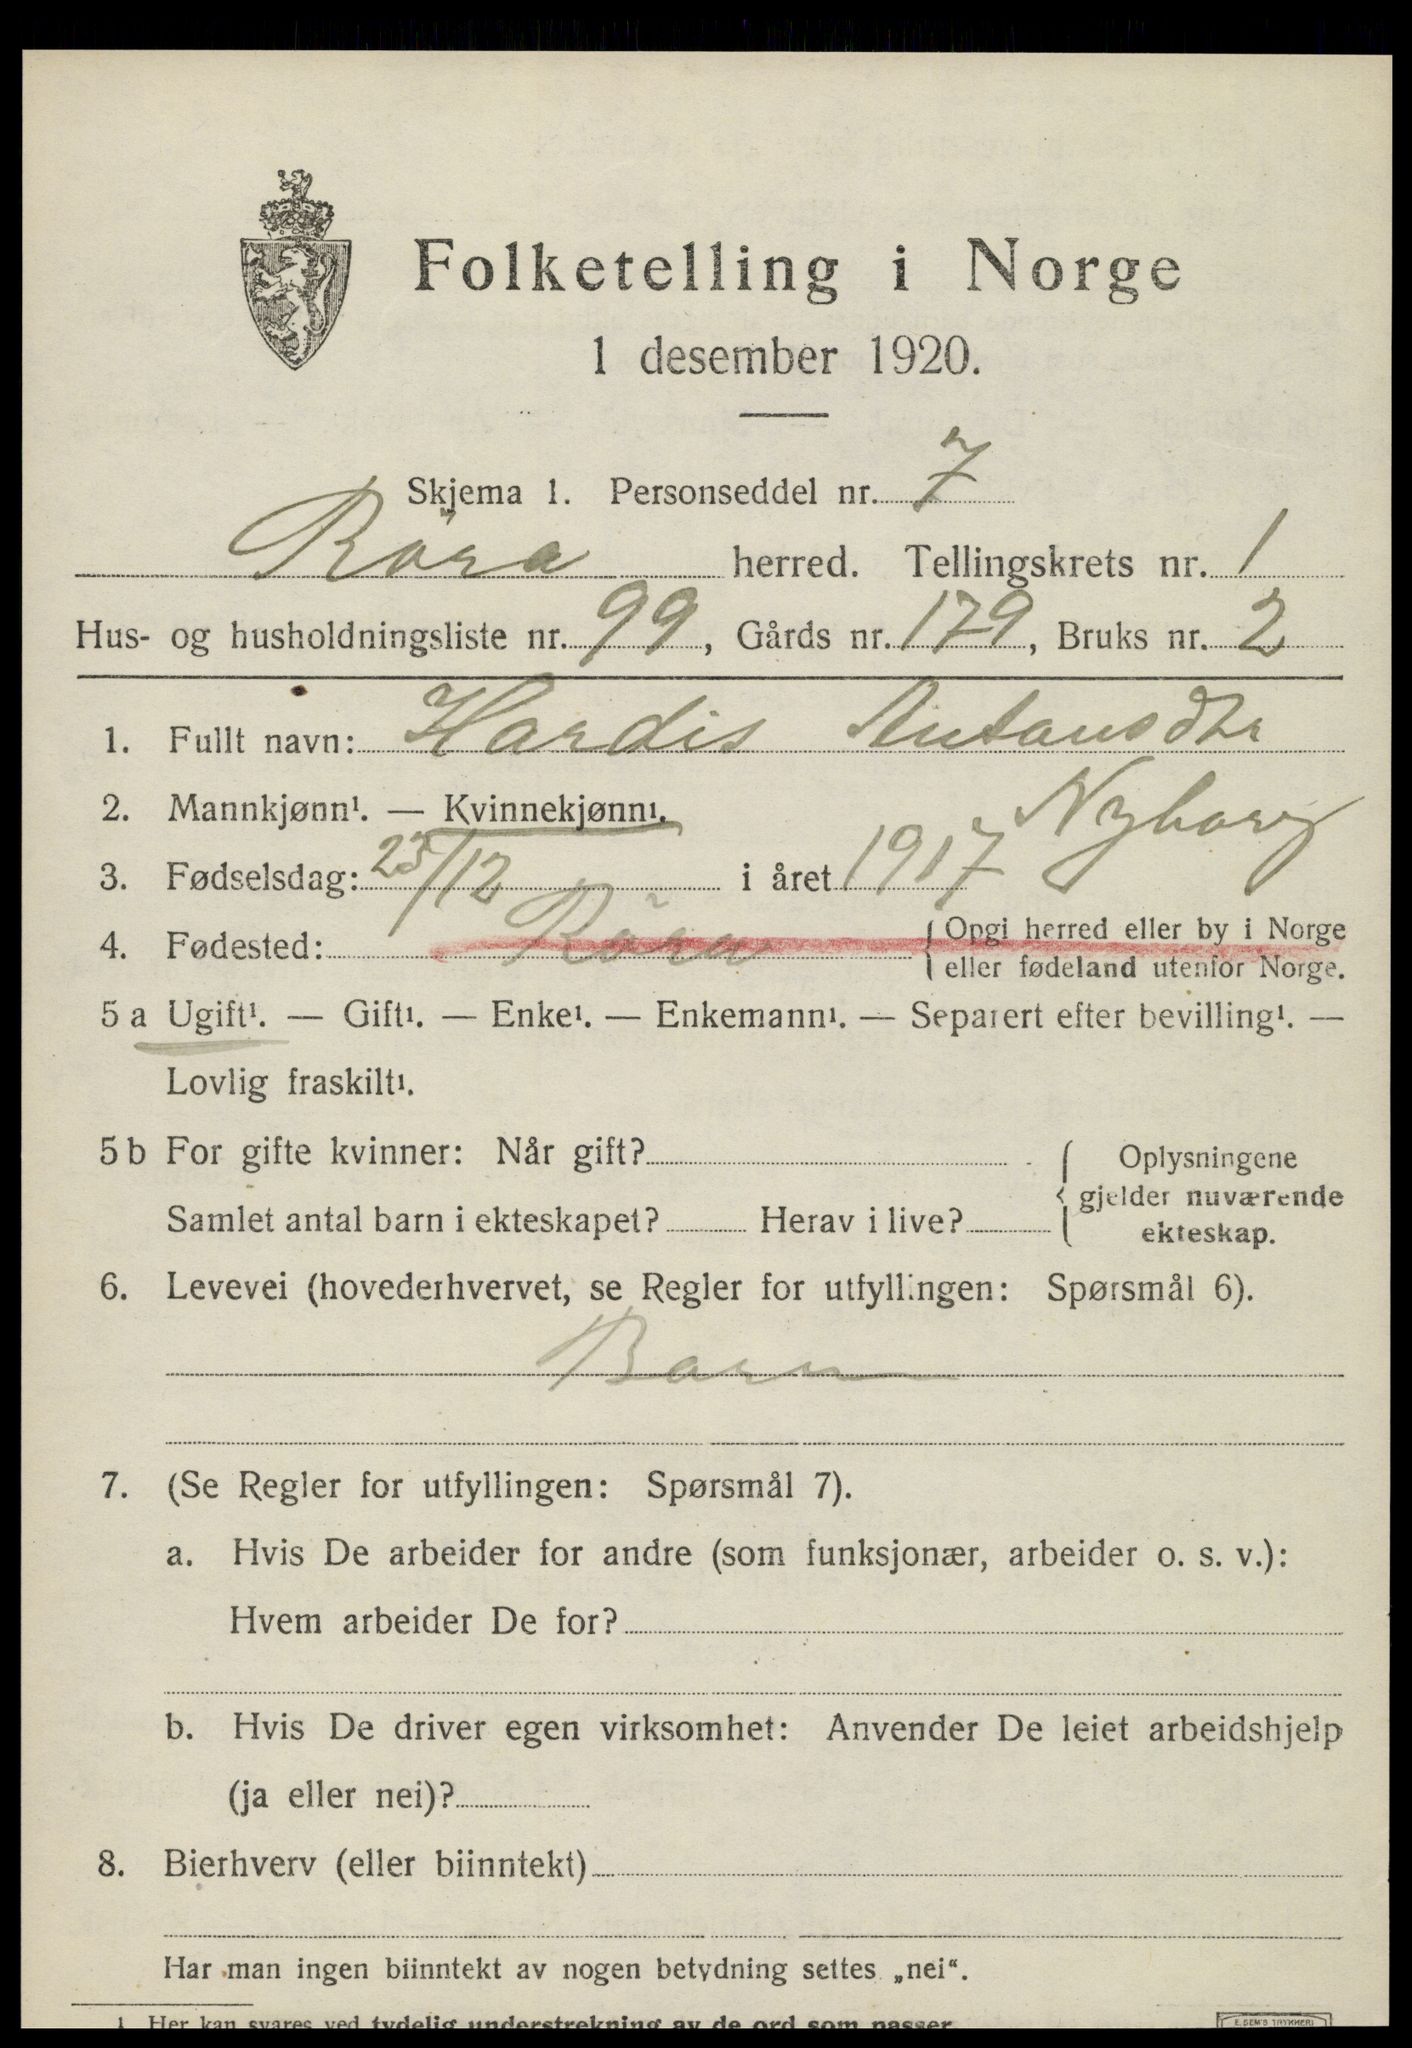 Folketelling i Norge
1 desember 1920.
Skjema 1. Personseddel nr. 7
Röra herred. Tellingskrets nr. 1
Hus- og husholdningsliste nr. 99, Gårds nr. 179, Bruks nr. 2
1. Fullt navn: Hardis Antonsdtr
Nyborg
2. Mannkjønn¹. — Kvinnekjønn¹.
3. Fødselsdag: 23/12 i året 1917
4. Fødested: Röra { Opgi herred eller by i Norge
eller fødeland utenfor Norge.
5 a Ugift¹. — Gift¹. — Enke¹. — Enkemann¹. — Separert efter bevilling¹. —
Lovlig fraskilt¹.
5 b For gifte kvinner: Når gift? { Oplysningene
gjelder nuværende
Samlet antal barn i ekteskapet? Herav i live? ekteskap.
6. Levevei (hovederhvervet, se Regler for utfyllingen: Spørsmål 6).
Barn
7. (Se Regler for utfyllingen: Spørsmål 7).
a. Hvis De arbeider for andre (som funksjonær, arbeider o. s. v.):
Hvem arbeider De for?
b. Hvis De driver egen virksomhet: Anvender De leiet arbeidshjelp
(ja eller nei)?
8. Bierhverv (eller biinntekt)
Har man ingen biinntekt av nogen betydning settes „nei“.
1 Her kan svares ved tydelig understrekning av de ord som passer.
E. SEM'S TRYKKERI